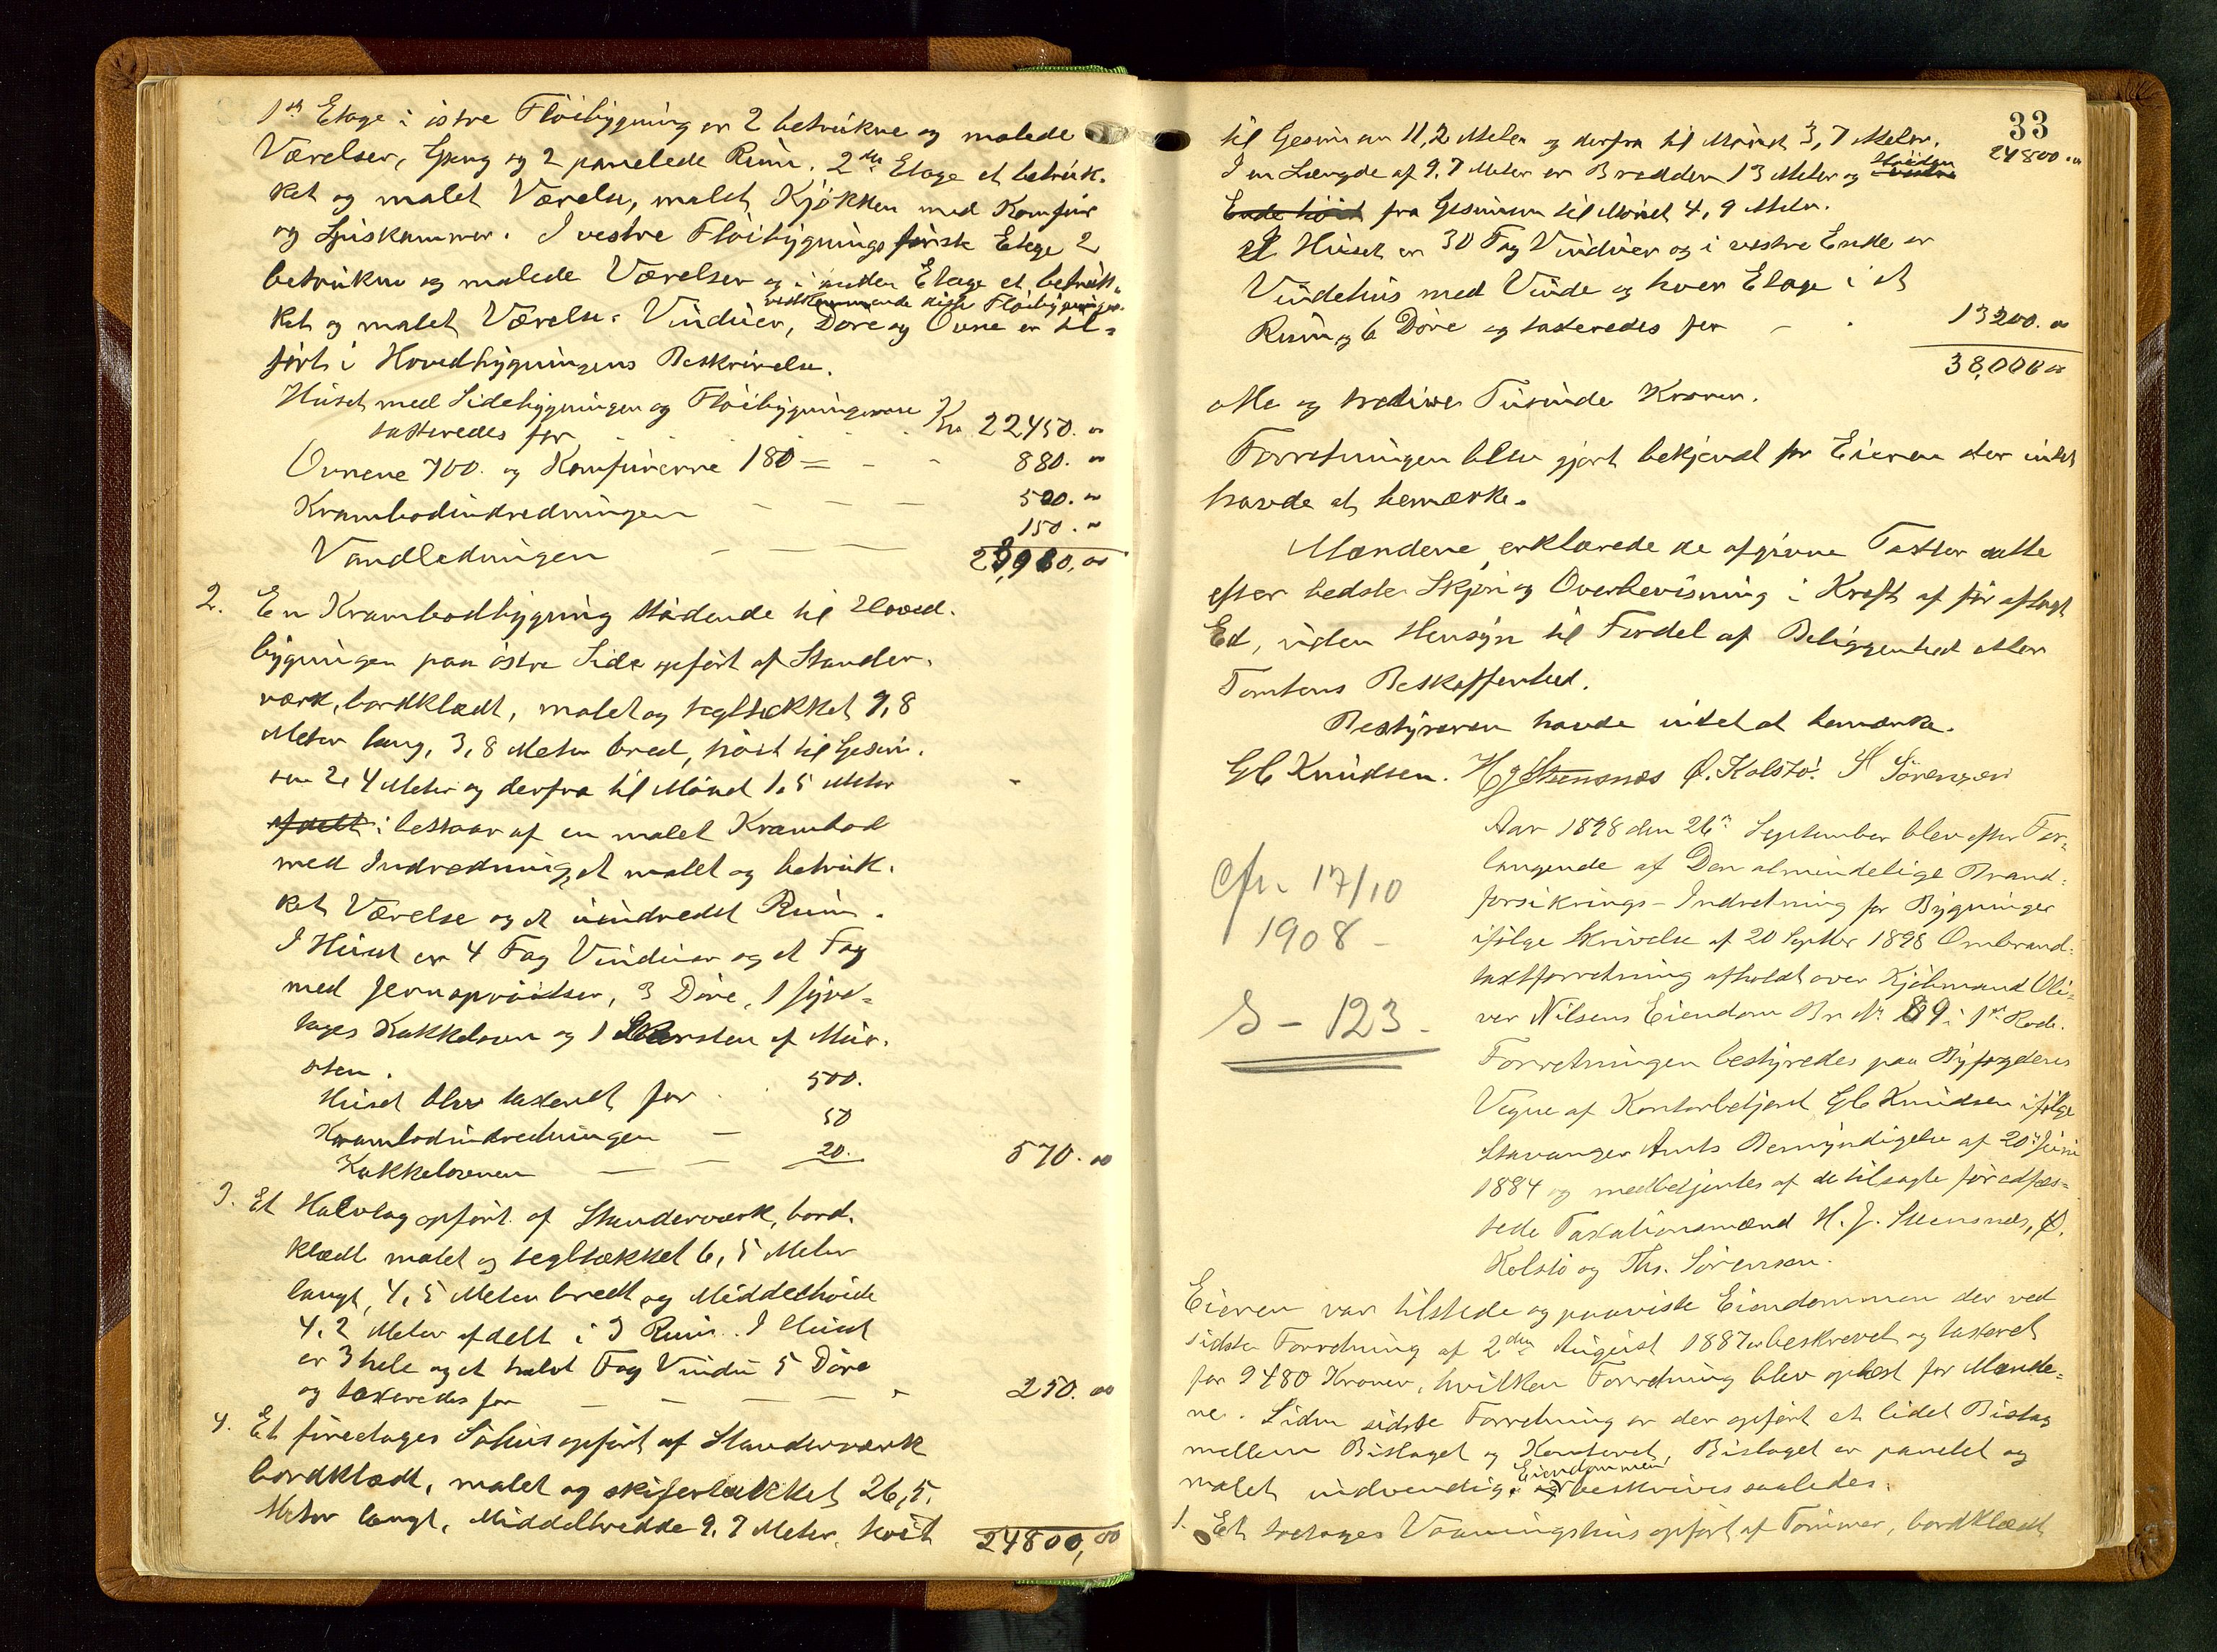 1ste Etage i östre Flöibygning er 2 betrukne og malede
Værelser, Gang og 2 panelede Rum. 2den Etage et betruk-
ket og malet Værelse, malet Kjökken med Komfur
og Spiskammer. I vestre Flöibygnings förste Etage 2
betrukne og malede Værelser og i anden Etage et betruk-
vedkommende disse Flöibygninger
ket og malet Værelse. Vinduer, Döre og Ovne er til-
fört i Hovedbygningens Beskrivelse.
Huset med Sidebygningen og Flöibygningerne
taxeredes for - - - Kr. 22450. 00
Ovnene 700. og Komfurerne 180 = - - 880. 00
Krambodindredningen - - - 500. 00
Vandledningen - - - 150. 00
23,980,00
2. En Krambodbygning stödende til Hoved-
bygningen paa östre Side opfört af Stander-
værk, bordklædt, malet og tegltækket 9,8
Meter lang, 3,8 Meter bred, höit til Gesim-
sen 2,4 Meter og derfra til Mönet 1,5 Meter
afdelt i bestaar af en malet Krambod
med Indredning, et malet og betruk-
ket Værelse og et uindredet Rum.
I Huset er 4 Fag Vinduer og et Fag
med Jernsprödser, 3 Döre, 1 to-
tages Kakkelovn og 1 Skorsten af Mur-
sten.
Huset blev taxeret for . 500.
Krambodindredningen - 50
Kakkelovnen - - 20. 570. 00
3. Et Halvtag opfört af Standerværk, bord-
klædt malet og tegltækket 6,5 Meter
langt, 4,5 Meter bredt og Middelhöide
4,2 Meter afdelt i 3 Rum. I Huset
er 3 hele og et halvt Fag Vindu 5 Döre
og taxeredes for - - - - 250. 00
4. Et firetages Söhus opfört af Standerværk
bordklædt, malet og skifertækket 26,5.
Meter langt, Middelbredde 9,7 Meter, höit
24800,00
33
til Gesimsen 11,2 Meter og derfra til Mönet 3,7 Meter. 24800.00
I en Længde af 9,7 Meter er Bredden 13 Meter og Höiden
Ende höit fra Gesimsen til Mönet 4,9 Meter.
I Huset er 30 Fag Vinduer og i vestre Ende er
Vindehus med Vinde og hver Etage i et
Rum og 6 Döre og taxeredes for - - 13200. 00
38,000 00
otte og tredive Tusinde Kroner.
Forretningen blev gjort bekjendt for Eieren der intet
havde at bemærke.
Mændene erklærede de afgivne Taxter satte
efter bedste Skjön og Overbevisning i Kraft af för aflagt
Ed, uden Hensyn til Fordel af Beliggenhed eller
Tomtens Beskaffenhed.
Bestyreren havde intet at bemærke.
Gb Knudsen. H J Steensnæs Ø. Kolstö. Th Sörensen
Aar 1898 den 26de September blev efter For-
langende af Den almindelige Brand-
forsikrings-Indretning for Bygninger
ifölge Skrivelse af 20 Septbr 1898 Ombrand-
taxtforretning afholdt over Kjöbmand Oli-
ver Nilsens Eiendom Br. No. 89 i 1ste Rode.
Forretningen bestyredes paa Byfogdens
Vegne af Kontorbetjent Gb Knudsen ifölge
Stavanger Amts Bemyndigelse af 20de Juni
1884 og medbetjentes af de tilsagte för edfæs-
tede Taxationsmænd H. J. Steensnæs, Ø.
Kolstö og Ths. Sörensen.
cfr. 17/10
1908 -
S - 123.
Eieren var tilstede og paaviste Eiendommen der ved
sidste Forretning af 2den August 1887 er beskrevet og taxeret
for 9480 Kroner, hvilken Forretning blev oplæst for Mænde-
ne. Siden sidste Forretning er der opfört et lidet Bislag
mellem Bislaget og Kontoret. Bislaget er panelet og
Eiendommen
malet indvendig. og beskrives saaledes:
1. Et totages Vaaningshus opfört af Tömmer, bordklædt